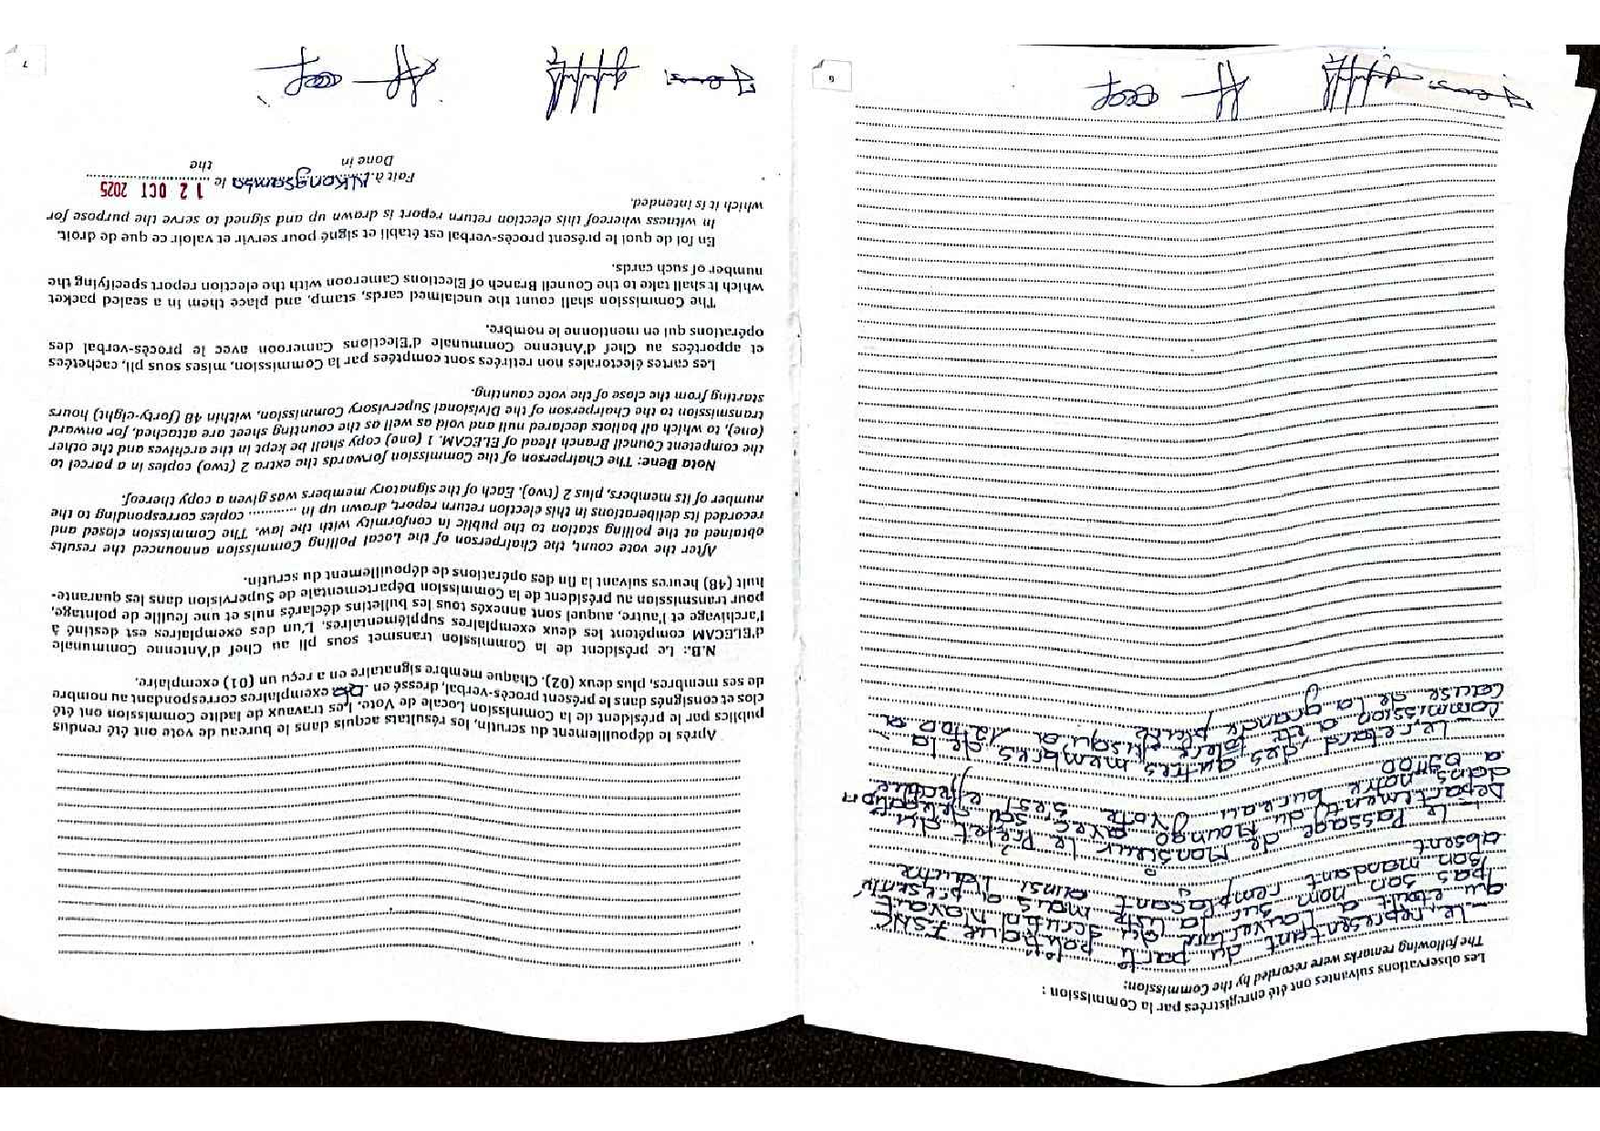 Les observations suivantes ont été enregistrées par la Commission :
The following remarks were recorded by the Commission:
- Le représentant du parti politique FSNC
qui était à l'ouverture du scrutin n'avait
pas son nom sur la liste mais a présenté
son mandant remplaçant ainsi l'autre
absent
- Le Passage de Monsieur le Préfet du
Département du Moungo avec sa délégation
dans notre bureau de vote s'est effectuée
à 09H00
- Le retard des autres membres de la
Commission a été toléré jusqu'à 12H00 à
cause de la grande pluie
6
Après le dépouillement du scrutin, les résultats acquis dans le bureau de vote ont été rendus
publics par le président de la Commission Locale de Vote. Les travaux de ladite Commission ont été
clos et consignés dans le présent procès-verbal, dressé en exemplaires correspondant au nombre
de ses membres, plus deux (02). Chaque membre signataire en a reçu un (01) exemplaire.
N.B.: Le président de la Commission transmet sous pli au Chef d'Antenne Communale
d'ELECAM compétent les deux exemplaires supplémentaires. L'un des exemplaires est destiné à
l'archivage et l'autre, auquel sont annexés tous les bulletins déclarés nuls et une feuille de pointage,
pour transmission au président de la Commission Départementale de Supervision dans les quarante-
huit (48) heures suivant la fin des opérations de dépouillement du scrutin.
After the vote count, the Chairperson of the Local Polling Commission announced the results
obtained at the polling station to the public in conformity with the law. The Commission closed and
recorded its deliberations in this election return report, drawn up in ............ copies corresponding to the
number of its members, plus 2 (two). Each of the signatory members was given a copy thereof.
Nota Bene: The Chairperson of the Commission forwards the extra 2 (two) copies in a parcel to
the competent Council Branch Head of ELECAM. 1 (one) copy shall be kept in the archives and the other
(one), to which all ballots declared null and void as well as the counting sheet are attached, for onward
transmission to the Chairperson of the Divisional Supervisory Commission, within 48 (forty-eight) hours
starting from the close of the vote counting.
Les cartes électorales non retirées sont comptées par la Commission, mises sous pli, cachetées
et apportées au Chef d'Antenne Communale d'Elections Cameroon avec le procès-verbal des
opérations qui en mentionne le nombre.
The Commission shall count the unclaimed cards, stamp, and place them in a sealed packet
which it shall take to the Council Branch of Elections Cameroon with the election report specifying the
number of such cards.
En foi de quoi le présent procès-verbal est établi et signé pour servir et valoir ce que de droit.
In witness whereof this election return report is drawn up and signed to serve the purpose for
which it is intended.
Fait à Nkongsamba le 12 OCT 2025
Done in the
7